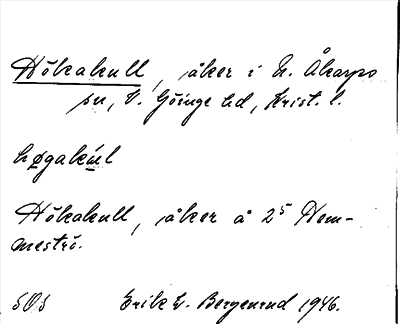 Hökakull, åker i N. Åkarps
sn, V. Göinge hd, Krist. l.
høgakúl
Hökakull, åker å 2⁵ Hem-
meströ.
SOS Erik W. Bergenrud 1946.